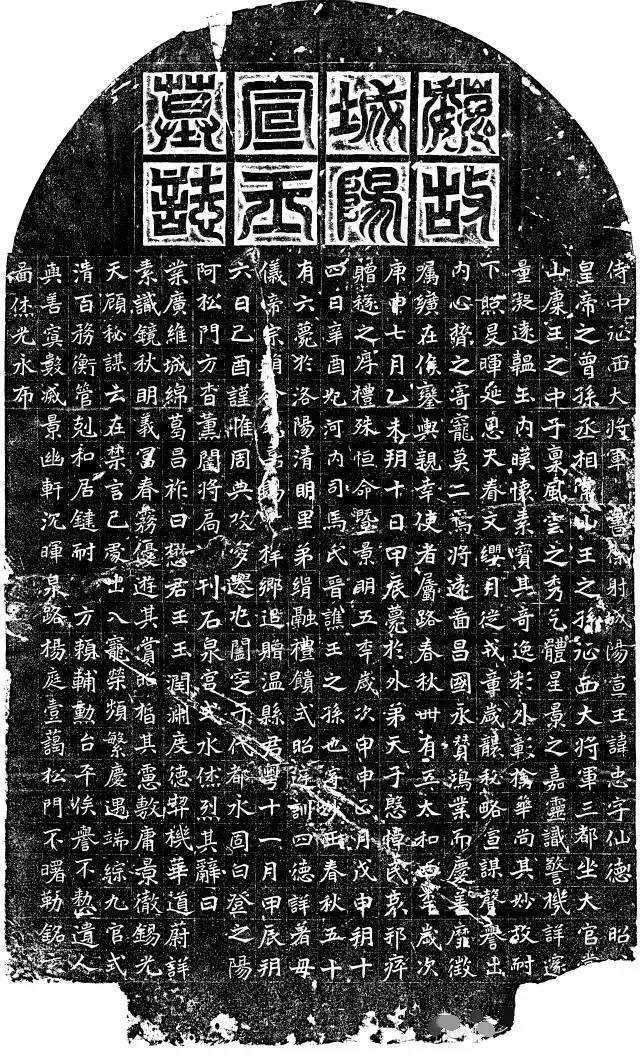 魏故城陽宣王墓誌
侍中征西大將軍射城陽宣王諱忠字仙德 昭
皇帝之曾孫丞相山王之孫征西大將軍三都坐大官
山康王之中子稟風雲之秀氣體星景之嘉靈識警機詳邃
量凝遠韞玉內暎懷素寶其奇逸彩外彰摛華尚其妙故耐
下照旻暉延恩天眷文纓月從戎章歲襲秘略宣謀聲譽出
內心膂之寄寵莫二焉將遠啚昌國永賛鴻業而慶善靡徵
屬纊在侯鑾輿親幸使者屬路春秋卌有五太和四年歲次
庚申七月乙未朔十日甲辰薨於外弟天子愍悼民哀邦瘁
贈襚之厚禮殊恒命暨景明五年歲次甲申月戊申朔十
四日辛酉妃河內司馬氏晉譙王之孫也字妙玉春秋五十
有六薨於洛陽清明里弟緝融禮饋式昭訓四德詳著母
儀帝宗梓鄉追贈溫縣君粵十一月甲辰朔
六日己酉謹惟周典窆于代都永固白登之陽
阿松門方杳薰闥將扃 刊石泉宮式永休烈其辭曰
業廣維城綿葛昌祚曰懋君王玉潤淵度德羿機華道蔚詳
素識鏡秋明義富春霧優遊其賞昭指其憲敷庸景徹錫光
天顧秘謀云在禁言已處出入寵榮頻繁慶遇端綜九官式
清百務衡管剋和居鍵耐 方頼輔勳台平娭譽不憖遺人
與善寘數滅景幽軒沉暉泉路楊庭壹藹松門不曙勒銘
啚休光永布